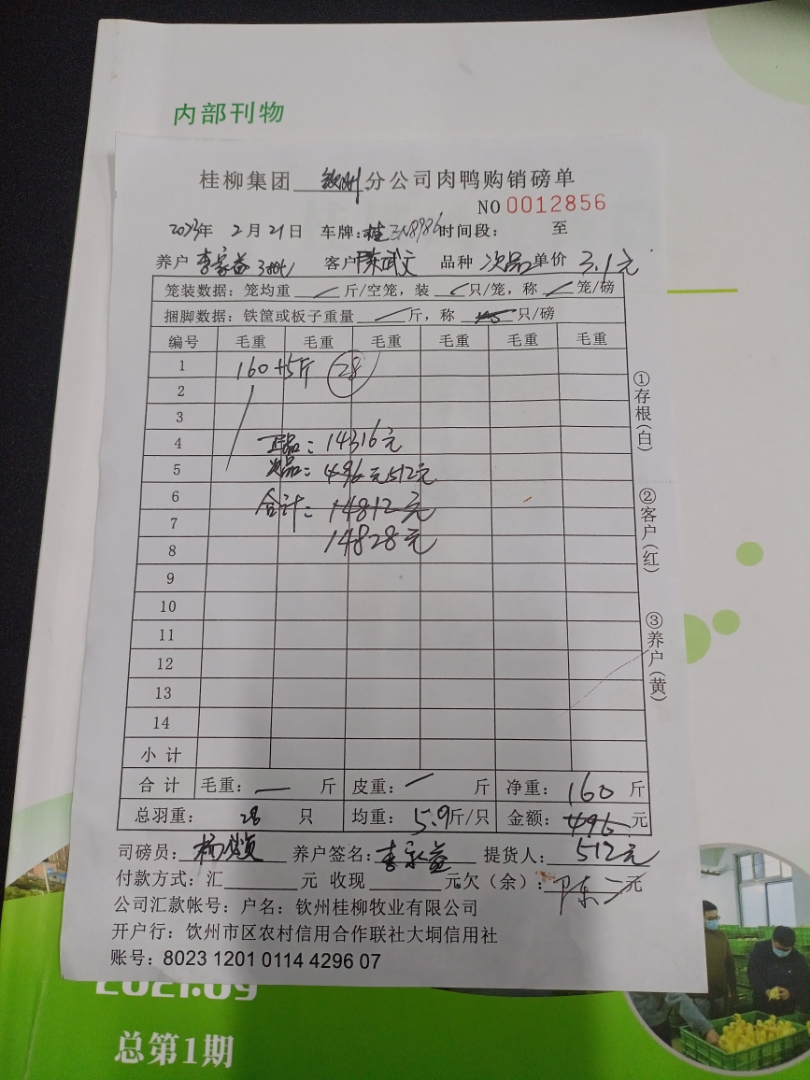 内部刊物
桂柳集团 钦州 分公司肉鸭购销磅单
NO 0012856
2023年 2月21日 车牌:桂 时间段: 至
养户 李家益 客户 陈武文 品种 次品 单价 3.1元
笼装数据:笼均重 斤/空笼,装 只/笼,称 笼/磅
捆脚数据:铁筐或板子重量 斤,称 只/磅
编号 毛重 毛重 毛重 毛重 毛重 毛重
1 160+5斤 28
2
3
4 正品:14316元
5 次品:496元 512元
6 合计:14812元
7
8 14828元
9
10
11
12
13
14
小计
合计 毛重:— 斤 皮重: 斤 净重:160 斤
总羽重: 28 只 均重:5.9斤/只 金额:496 元
司磅员: 养户签名:李家益 提货人: 512元
付款方式:汇 元 收现 元欠(余): 元
公司汇款帐号:户名:钦州桂柳牧业有限公司
开户行:钦州市区农村信用合作联社大垌信用社
账号:8023 1201 0114 4296 07
①存根(白)
②客户(红)
③养户(黄)
2021.09
总第1期